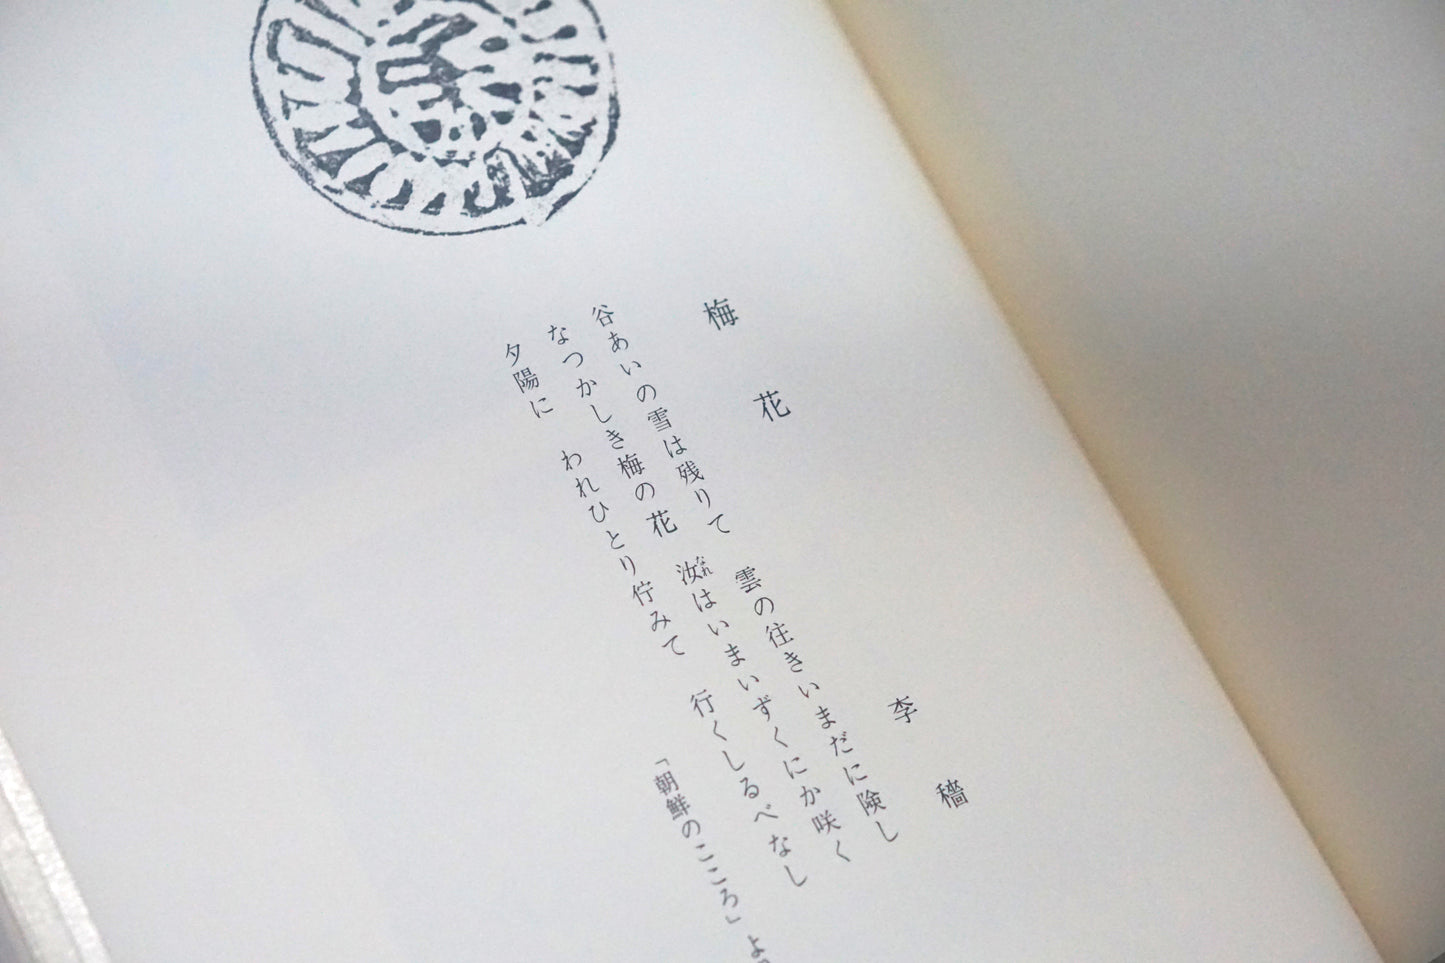 梅花
李穡
谷あいの雪は残りて　雲の往きいまだに険し
なつかしき梅の花　汝なれはいまいずくにか咲く
夕陽に　われひとり佇みて　行くしるべなし
「朝鮮のこころ」よ